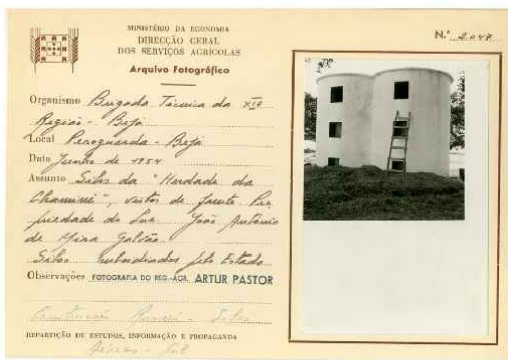 MINISTÉRIO DA ECONOMIA
DIRECÇÃO GERAL
DOS SERVIÇOS AGRÍCOLAS
Arquivo Fotográfico
N.º 2.047
Organismo Brigada Técnica da XIV
Região - Beja
Local Peroguarda - Beja
Data Junho de 1954
Assunto Silos da "Herdade da
Chaminé", vistos de frente. Pro
priedade do Snr. João António
de Mira Galvão.
Silos subsidiados pelo Estado
Observações FOTOGRAFIA DO REG.-AGR. ARTUR PASTOR
Construção Rurais - Silos
REPARTIÇÃO DE ESTUDOS, INFORMAÇÃO E PROPAGANDA
Aéreos -